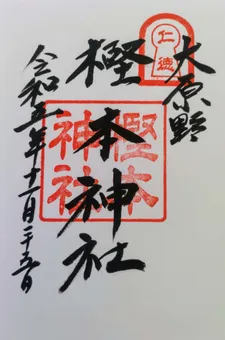 大原野
樫本神社
令和五年十一月二十五日
仁徳
樫本
神社